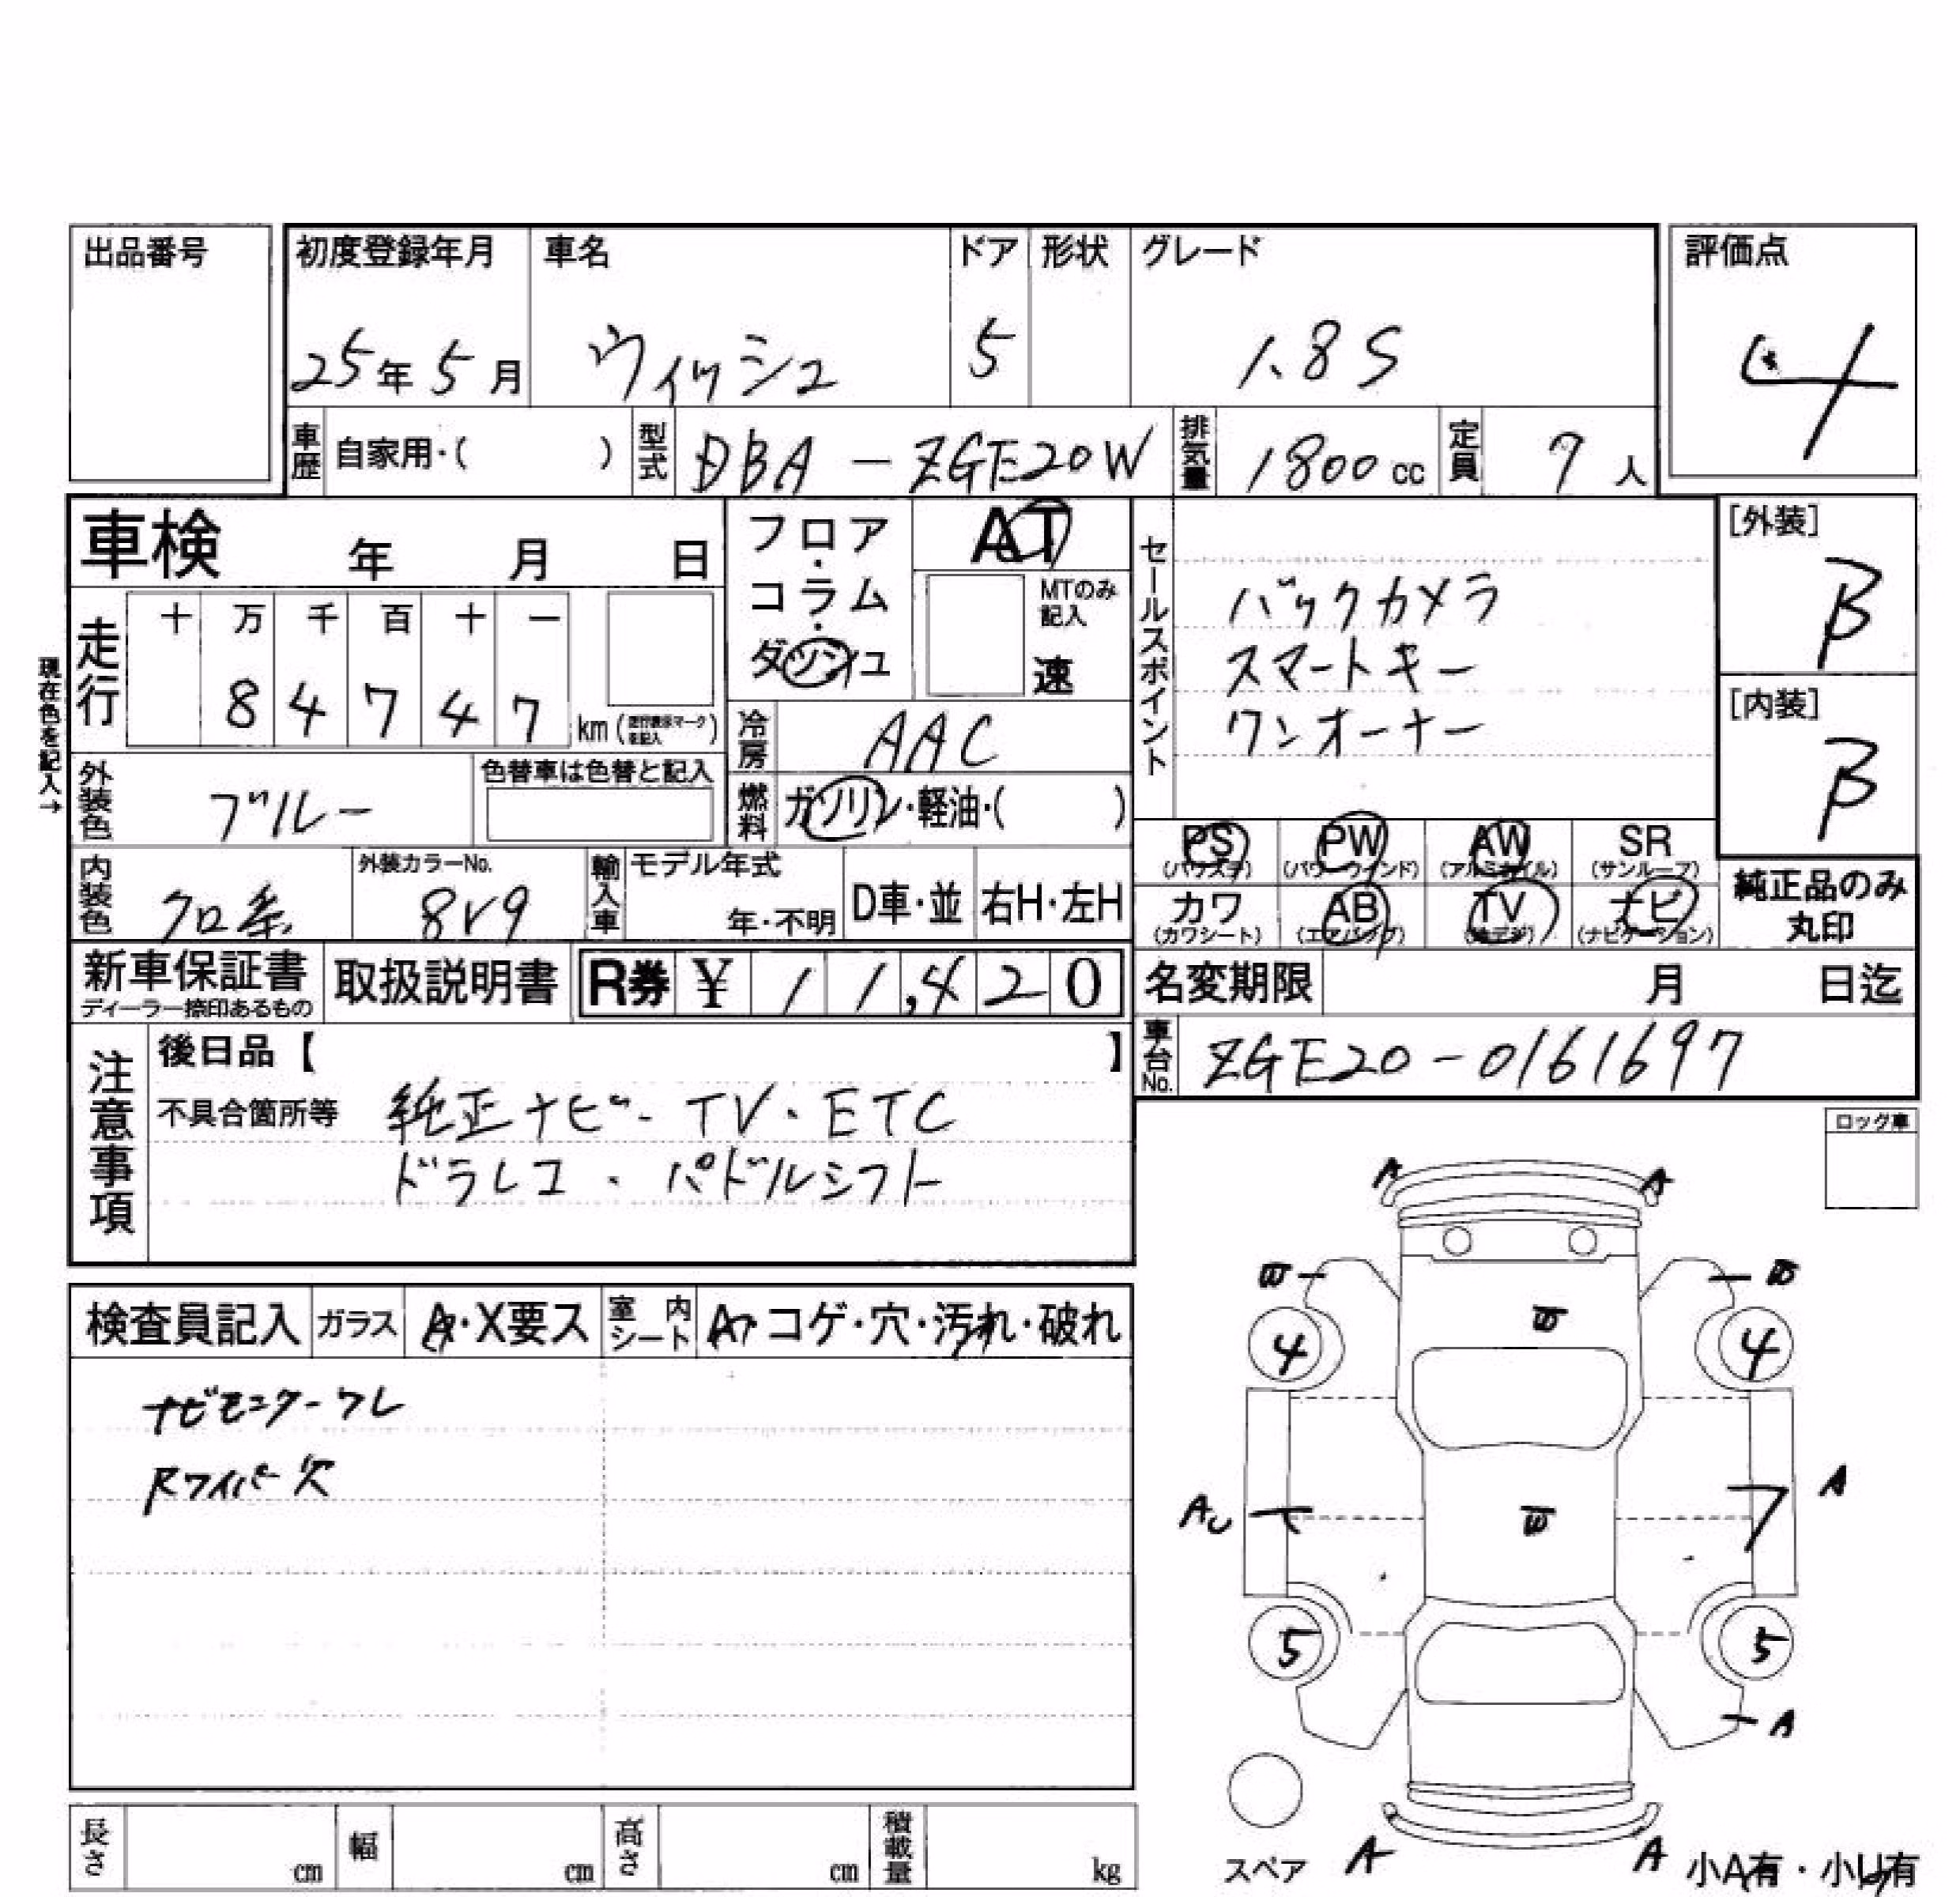 出品番号
初度登録年月
25年 5月
車名
ウィッシュ
ドア
5
形状
グレード
1.8S
評価点
4
車歴
自家用・( )
型式
DBA-ZGE20W
排気量
1800cc
定員
7人
車検 年 月 日
フロア・コラム・ダッシュ
AT
MTのみ記入
速
現在色を記入→
走行
十 万 千 百 十 一
8 4 7 4 7
km
冷房
AAC
外装色
ブルー
色替車は色替と記入
燃料
ガソリン・軽油・( )
内装色
クロ系
外装カラーNo.
8V9
輸入車
モデル年式
年・不明
D車・並
右H・左H
セールスポイント
バックカメラ
スマートキー
ワンオーナー
[外装]
B
[内装]
B
PS PW AW SR
(パワステ) (パワーウインド) (アルミホイル) (サンルーフ)
カワ AB TV ナビ
(カワシート) (エアバッグ) (地デジ) (ナビゲーション)
純正品のみ
丸印
新車保証書
ディーラー捺印あるもの
取扱説明書
R券 ¥ 11,420
名変期限 月 日迄
車台No.
ZGE20-0161697
注意事項
後日品【 】
不具合箇所等
純正ナビ・TV・ETC
ドラレコ・パドルシフト
ロック車
検査員記入
ガラス
A・X要ス
室内シート
コゲ・穴・汚れ・破れ
ナビモニターワレ
Rワイパー欠
A A
W W
W
4 4
A
AU W
5 5
A
スペア
A A
小A有・小U有
長さ cm
幅 cm
高さ cm
積載量 kg